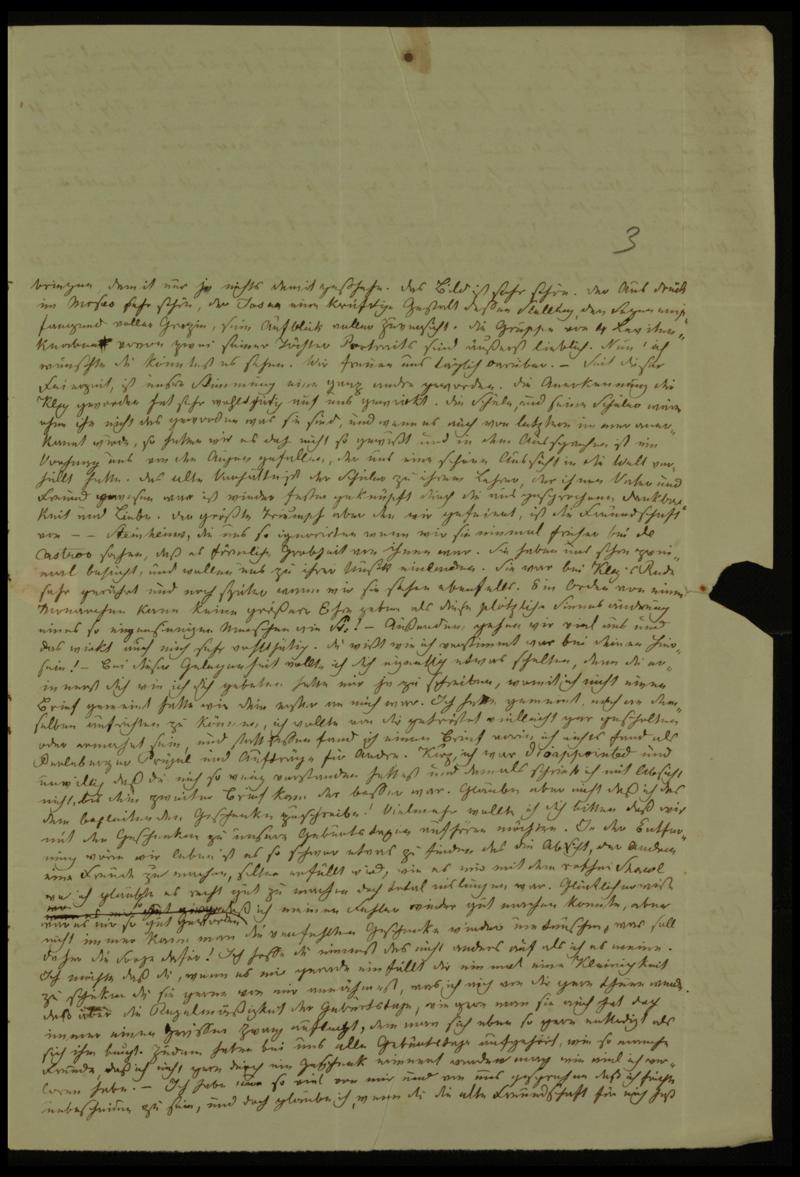 3
bringen, damit nur ja nichts damit geschehe. Das Bild ist sehr schön. Der Ausdruck
im Moses sehr schön, der Josua eine kräftige Gestalt dessen Stellung, den Segen emp-
fangend voller Grazie, sein Aufblick voller Zuversicht. Die Gruppe von 4 Leviten-
knaben wovon zwei seiner Töchter Portraits sind äußerst lieblich. Nun! ich
wünschte du könntest es sehen. Wir freuen uns täglich darüber. – Seit dieser
Feierzeit, ist unsre Stimmung eine ganz andre geworden. Die Anerkennung die
Kley geworden hat sehr wohlthätig auf uns gewirkt. Die Schule, und seine Schüler wären
ohne ihn nicht das geworden was sie sind, und wenn es auch von letztern immer aner-
kannt wurde, so hatten wir es doch nicht so gewußt und in dem Aussprechen ist ein
Vorhang uns von den Augen gefallen, der uns eine schöne Aussicht in die Welt ver-
hüllt hatte. Das alte Verhältniß der Schüler zu ihrem Lehrer, der ihnen Vater und
Freund gewesen war ist wieder fester geknüpft durch die uns gesprochene Dankbar-
keit und Liebe. Der größte Triumph aber den wir gefeiert, ist die Freundschaft
von – – Steinheims, die uns so ignorirten wenn wir sie einmal früher bei de
Castros sahen, daß es förmliche Grobheit von ihnen war. Sie haben uns schon zwei-
mal besucht, und wollen uns zu ihrer Musik einladen. Sie war bei Kley's Rede
sehr gerührt und noch später wenn wir sie sahen ebenfalls. Ein Orden von einem
Monarchen kann keine größere Ehre geben als diese plötzliche Sinnesänderung
eines so eigensinnigen Menschen wie St.! – Außerdem, gehen wir viel aus und
das wirkt auch mich sehr wohlthätig. Du weißt wie ich verstimmt war bei deinem Hier-
sein! – Bei dieser Gelegenheit wollte ich dich eigentlich etwas schelten, denn du er-
innerst dich wie ich dich gebeten hatte mir ja zu schreiben, womit ich nicht einen
Brief gemeint hatte wie dein erster an mich war. Ich hatte gemeint, mich an dem-
selben aufrichten zu können, ich wollte von dir getröstet vielleicht gar gescholten
oder ermahnt sein, und statt dessen fand ich einen Brief worin ich nichts fand als
Perleberger und Aufträge für Andre. Kurz, ich war disappointed und
unwillig daß du mich so wenig verstanden hattest und damals schrieb ich mit Absicht
nicht, bis dein zweiter Brief kam der besser war. Glaube aber nicht daß ich das
dem begleitenden Geschenken zuschreibe! Vielmehr wollte ich dich bitten daß wir
mit den Geschenken zu unsern Geburtstagen aufhören möchten. In der Entfer-
nung worin wir leben ist es so schwer etwas zu finden das die Absicht, der andern
eine Freude zu machen, selten erfüllt wird, wie es mir mit dem rothen Shawl
wo ich glaubte es recht gut zu machen doch total mislungen war. Glücklicherweise
war es mir so gut geworden daß ich meinen Fehler wieder gut machen konnte, aber
nicht immer kann man die verfehlten Geschenke wieder umtauschen, was soll
daher die Sorge dafür! Ich hoffe du nimmst das nicht anders auf als ich es meine.
Ich möchte daß du, wenn es mir gerade einfällt dir einmal eine Kleinigkeit
zu schicken du sie gerne von mir annähmest, was ich auch von dir gern thuen werde.
daß aber die Regelmäßigkeit der Geburtstage, wie gern man sie auch hat doch
immer einen gewissen Zwang auflegt, dem man sich eben so gern entledigt als
sich ihm beugt. Zudem haben bei uns alle Geburtstage aufgehört, wie so manche
Freude, daß ich nicht gern durch ein Geschenk erinnert werden mag wie viel ich ver-
loren habe. – Ich habe nun so viel von mir und von uns gesprochen daß ich fürchte
unbescheiden zu sein, und doch glaube ich, wenn du die alte Freundschaft für mich hast